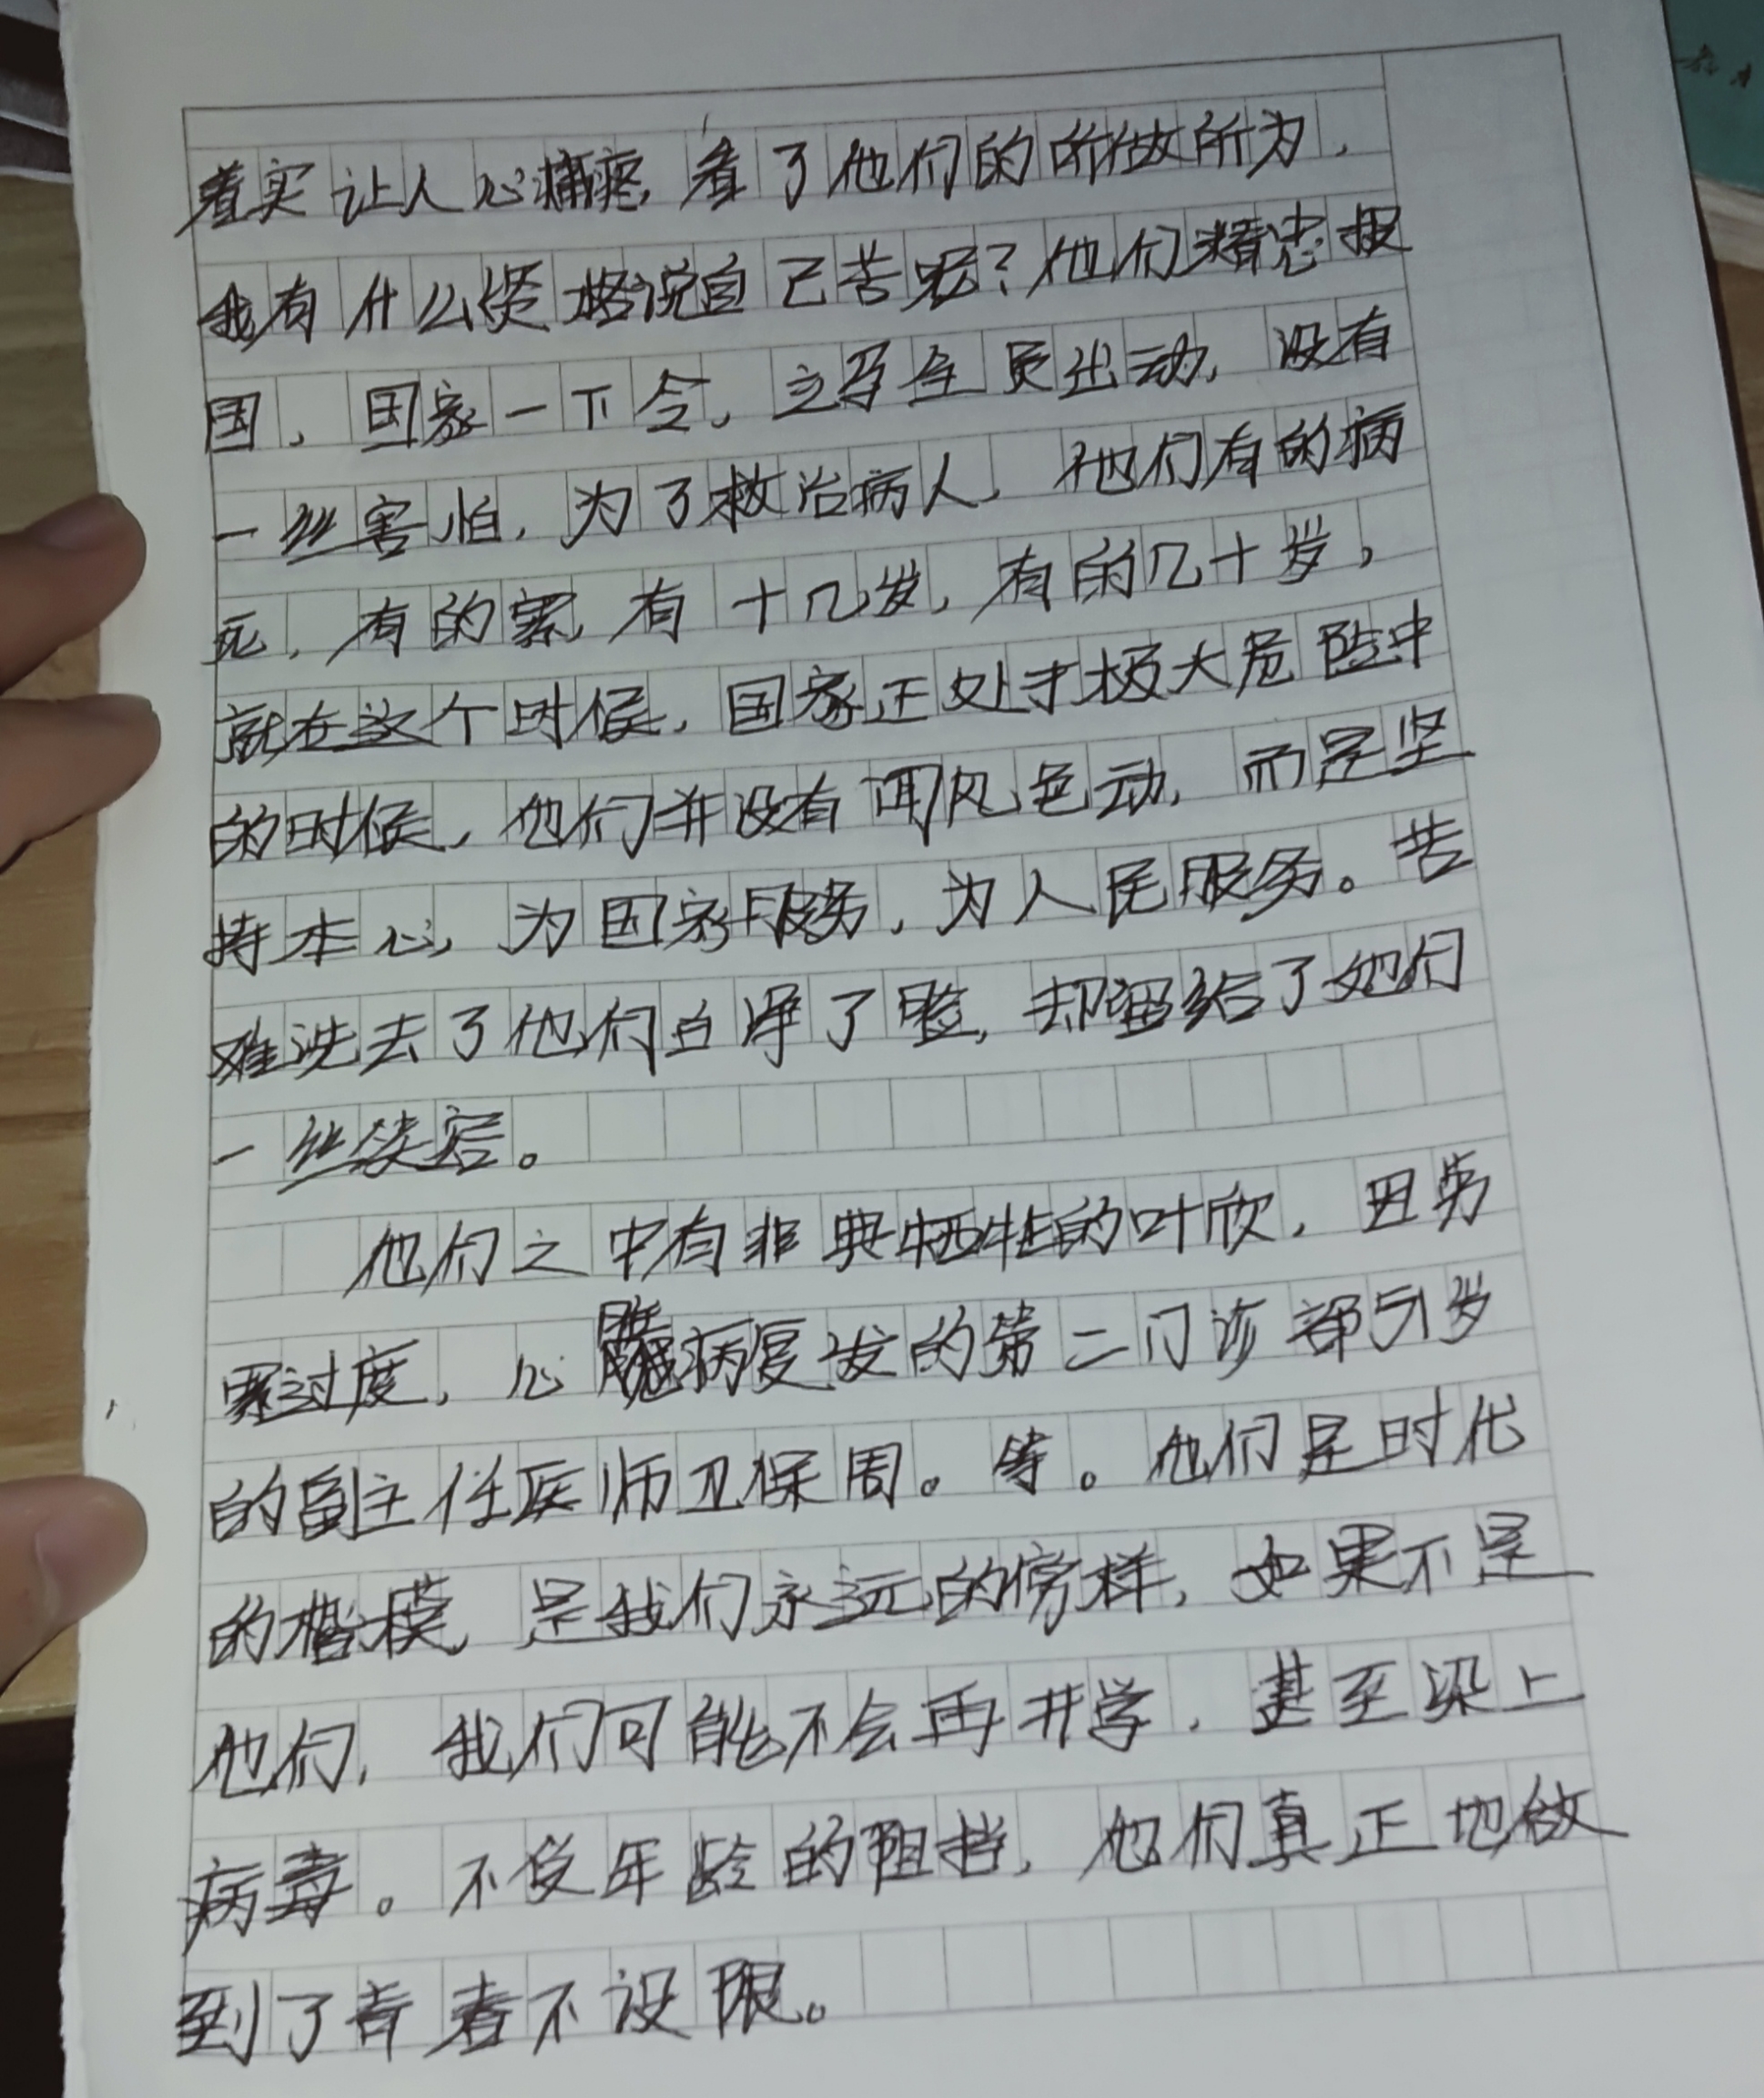 着实让人心痛疼,看了他们的所做所为,
我有什么资格说自己苦呢?他们精忠报
国,国家一下令,立写全员出动,没有
一丝害怕,为了救治病人,他们有的病
死,有的累,有十几岁,有的几十岁,
就在这个时候,国家正处于极大危险中
的时候,他们并没有闻风色动,而是坚
持本心,为国家服务,为人民服务。苦
难洗去了他们白净了脸,却留给了她们
一丝
他们之中有非典牺牲的叶欣,因劳
累过度,心脏病复发的第二门诊部51岁
的副主任医师卫保周。等。他们是时代
的楷模,是我们永远的傍样,如果不是
他们,我们可能不会再开学,甚至染上
病毒。不受年龄的阻挡,他们真正地做
到了青春不设限。